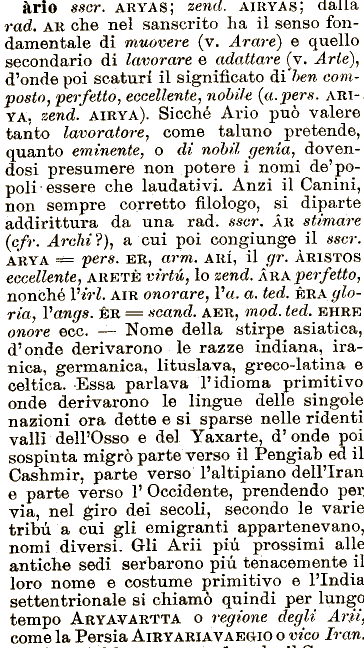 ário sscr. ARYAS; zend. AIRYAS; dalla
rad. AR che nel sanscrito ha il senso fon-
damentale di muovere (v. Arare) e quello
secondario di lavorare e adattare (v. Arte),
d'onde poi scaturí il significato di ben com-
posto, perfetto, eccellente, nobile (a. pers. ARI-
YA, zend. AIRYA). Sicché Ario può valere
tanto lavoratore, come taluno pretende,
quanto eminente, o di nobil genía, doven-
dosi presumere non potere i nomi de' po-
poli essere che laudativi. Anzi il Canini,
non sempre corretto filologo, si diparte
addirittura da una rad. sscr. ÂR stimare
(cfr. Archi?), a cui poi congiunge il sscr.
ARYA = pers. ER, arm. ARI, il gr. ÀRISTOS
eccellente, ARETÈ virtú, lo zend. ÂRA perfetto,
nonché l'irl. AIR onorare, l'a. a. ted. ÊRA glo-
ria, l'angs. ÊR = scand. AER, mod. ted. EHRE
onore ecc. — Nome della stirpe asiatica,
d'onde derivarono le razze indiana, ira-
nica, germanica, lituslava, greco-latina e
celtica. Essa parlava l'idioma primitivo
onde derivarono le lingue delle singole
nazioni ora dette e si sparse nelle ridenti
valli dell'Osso e del Yaxarte, d'onde poi
sospinta migrò parte verso il Pengiab ed il
Cashmir, parte verso l'altipiano dell'Iran
e parte verso l'Occidente, prendendo per
via, nel giro dei secoli, secondo le varie
tribú a cui gli emigranti appartenevano,
nomi diversi. Gli Arii piú prossimi alle
antiche sedi serbarono piú tenacemente il
loro nome e costume primitivo e l'India
settentrionale si chiamò quindi per lungo
tempo ARYAVARTTA o regione degli Arii,
come la Persia AIRYARIAVAEGIO o vico Iran,